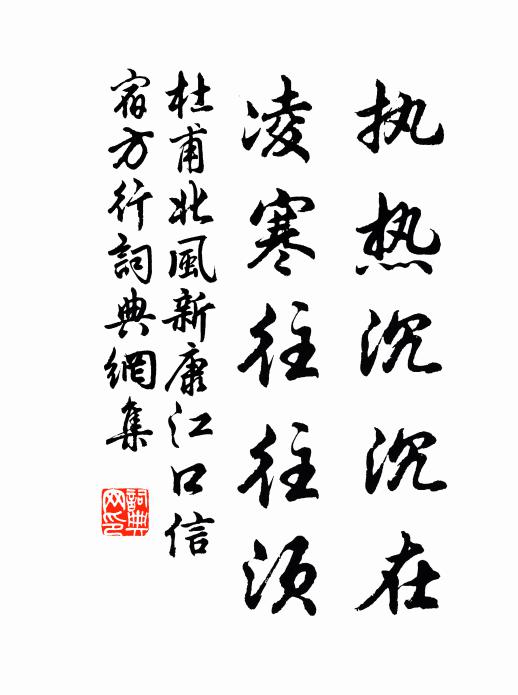 执热沉沉在
凌寒往往须
杜甫北風新康江口信
宿方行詞典網集
詞典网印